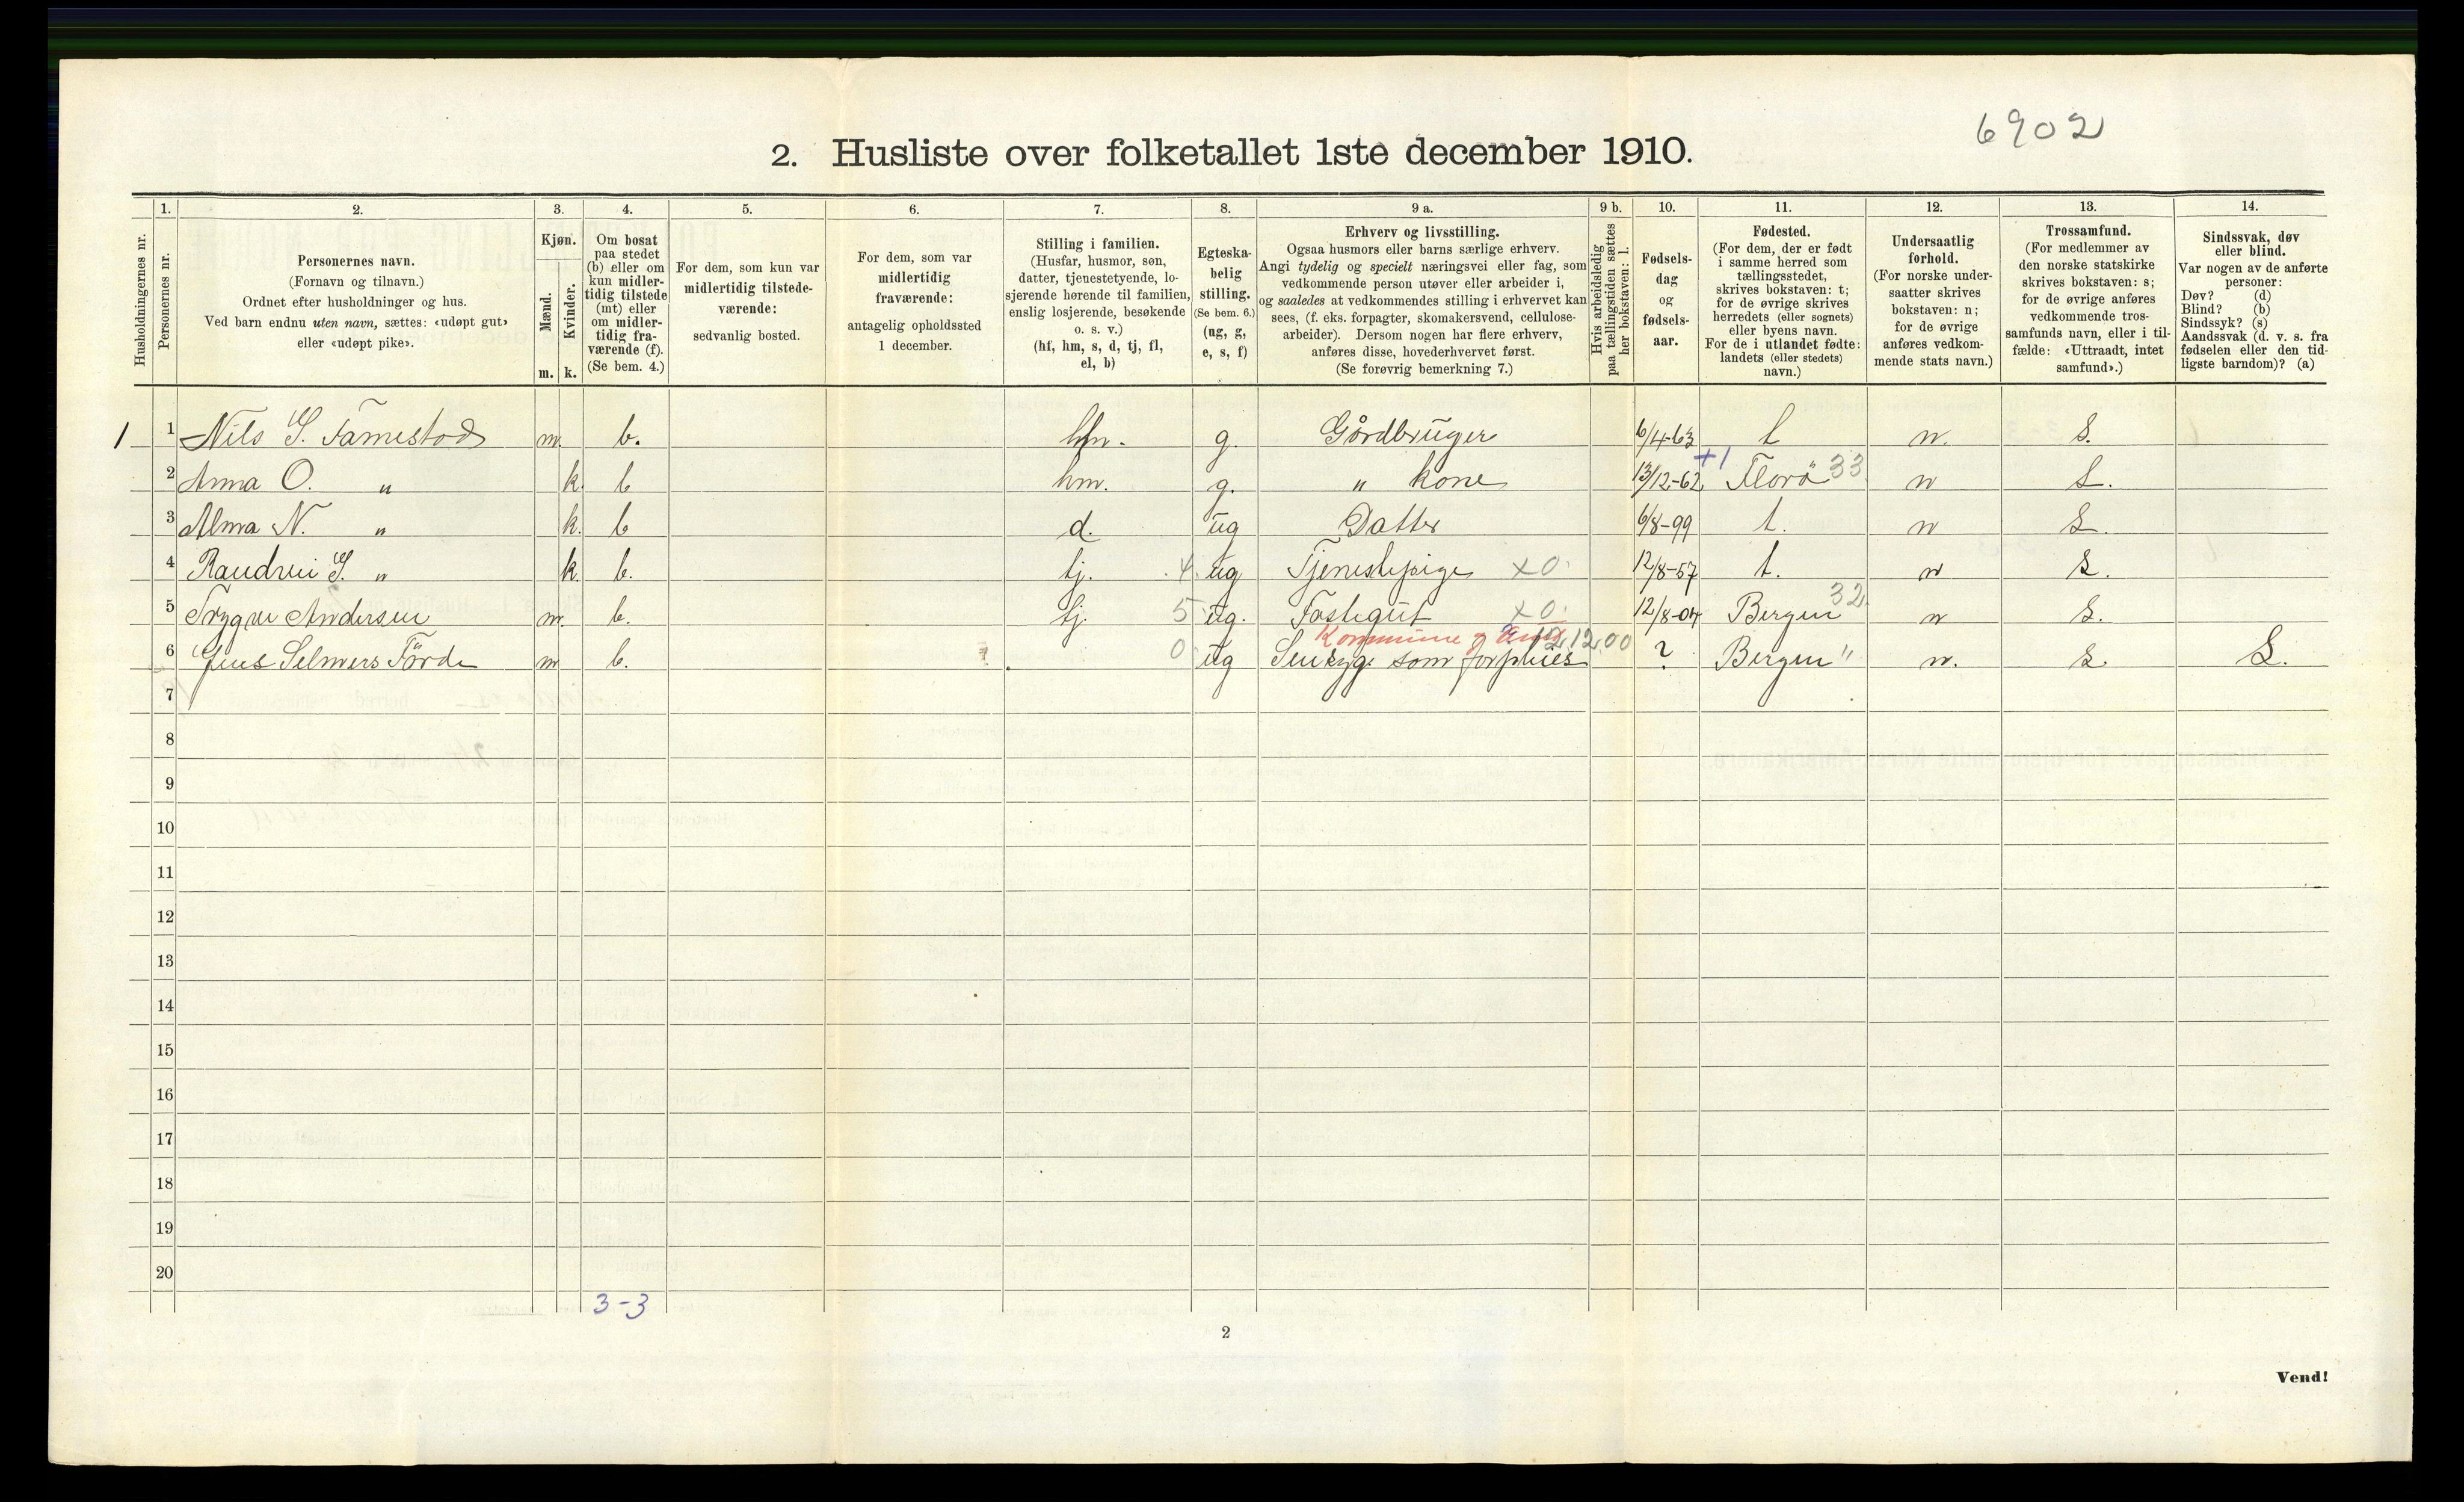 6902
2. Husliste over folketallet 1ste december 1910.
Husholdningernes nr.
1.
Personernes nr.
2.
Personernes navn.
(Fornavn og tilnavn.)
Ordnet efter husholdninger og hus.
Ved barn endnu uten navn, sættes: «udøpt gut»
eller «udøpt pike».
3.
Kjøn.
Mænd.
Kvinder.
m. k.
4.
Om bosat
paa stedet
(b) eller om
kun midler-
tidig tilstede
(mt) eller
om midler-
tidig fra-
værende (f).
(Se bem. 4.)
5.
For dem, som kun var
midlertidig tilstede-
værende:
sedvanlig bosted.
6.
For dem, som var
midlertidig
fraværende:
antagelig opholdssted
1 december.
7.
Stilling i familien.
(Husfar, husmor, søn,
datter, tjenestetyende, lo-
sjerende hørende til familien,
enslig losjerende, besøkende
o. s. v.)
(hf, hm, s, d, tj, fl,
el, b)
8.
Egteska-
belig
stilling.
(Se bem. 6.)
(ug, g,
e, s, f)
9 a.
Erhverv og livsstilling.
Ogsaa husmors eller barns særlige erhverv.
Angi tydelig og specielt næringsvei eller fag, som
vedkommende person utøver eller arbeider i,
og saaledes at vedkommendes stilling i erhvervet kan
sees, (f. eks. forpagter, skomakersvend, cellulose-
arbeider). Dersom nogen har flere erhverv,
anføres disse, hovederhvervet først.
(Se forøvrig bemerkning 7.)
9 b.
Hvis arbeidsledig
paa tællingstiden sættes
her bokstaven: l.
10.
Fødsels-
dag
og
fødsels-
aar.
11.
Fødested.
(For dem, der er født
i samme herred som
tællingsstedet,
skrives bokstaven: t;
for de øvrige skrives
herredets (eller sognets)
eller byens navn.
For de i utlandet fødte:
landets (eller stedets)
navn.)
12.
Undersaatlig
forhold.
(For norske under-
saatter skrives
bokstaven: n;
for de øvrige
anføres vedkom-
mende stats navn.)
13.
Trossamfund.
(For medlemmer av
den norske statskirke
skrives bokstaven: s;
for de øvrige anføres
vedkommende tros-
samfunds navn, eller i til-
fælde: «Uttraadt, intet
samfund».)
14.
Sindssvak, døv
eller blind.
Var nogen av de anførte
personer:
Døv? (d)
Blind? (b)
Sindssyk? (s)
Aandssvak (d. v. s. fra
fødselen eller den tid-
ligste barndom)? (a)
1 1 Nils S. Tamestad m. b. g. Gårdbruger 6/4-63 t n. S.
2 Anna O. " k. b hm. g. " kone 13/12-62 +1 Florö 33 n S.
3 Alma N. " k. b d. ug Datter 6/8-99 t. n S
4 S. " k. b. tj. 4. ug x0 12/8-57 t. n S.
5 Trygve Andersen m. b. tj. 5 ug. x0 12/8-04 Bergen 32 n S.
Kommune 12,12,00
6 Jens Selmers Förde m b. 0 ug som ? Bergen " n. S. S.
7
8
9
10
11
12
13
14
15
16
17
18
19
20
3-3
2
Vend!